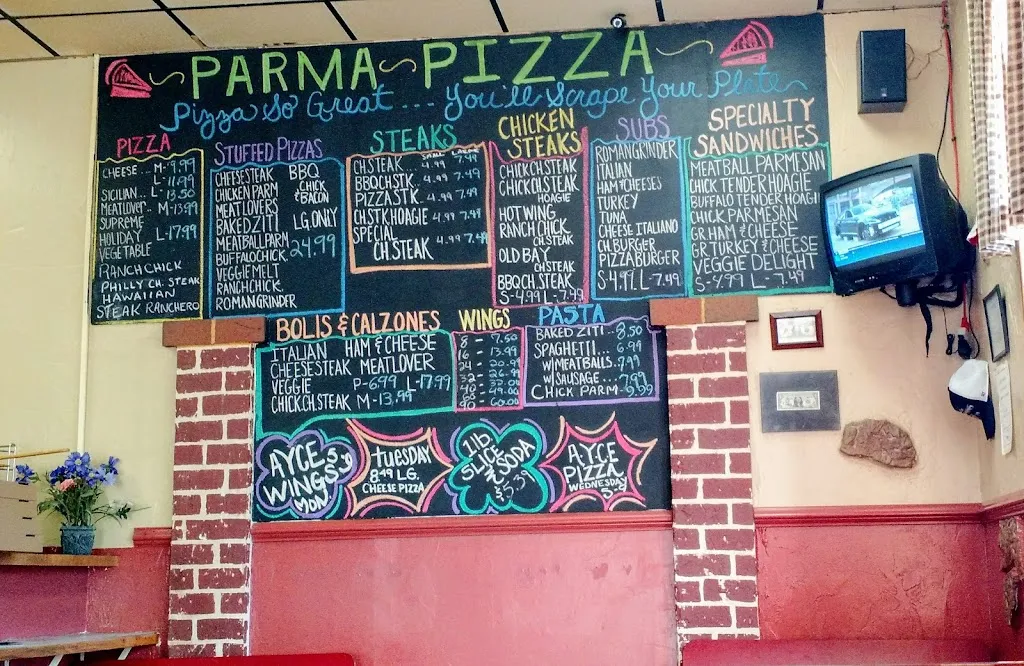 PARMA PIZZA
Pizza So Great... You'll Scrape Your Plate
PIZZA
CHEESE... M-9.99
L-11.99
SICILIAN.. L-13.50
MEATLOVER.. M-13.99
SUPREME
HOLIDAY L-17.99
VEGETABLE
RANCH CHICK
PHILLY CH. STEAK
HAWAIIAN
STEAK RANCHERO
STUFFED PIZZAS
CHEESESTEAK
CHICKEN PARM
MEATLOVERS
BAKED ZITI
MEATBALL PARM
BUFFALO CHICK.
VEGGIE MELT
RANCH CHICK.
ROMAN GRINDER
BBQ
CHICK
& BACON
LG. ONLY
24.99
STEAKS
SMALL LARGE
CH. STEAK 4.99 7.49
BBQ CH. STK. 4.99 7.49
PIZZA STK. 4.99 7.49
CH. STK HOAGIE 4.99 7.49
SPECIAL
CH. STEAK 4.99 7.49
CHICKEN
STEAKS
CHICK CH. STEAK
CHICK CH. STEAK
HOAGIE
HOT WING
RANCH CHICK
CH. STEAK
OLD BAY
CH. STEAK
BBQ CH. STEAK
S-4.99 L-7.49
SUBS
ROMAN GRINDER
ITALIAN
HAM & CHEESES
TURKEY
TUNA
CHEESE ITALIANO
CH. BURGER
PIZZA BURGER
S-4.99 L-7.49
SPECIALTY
SANDWICHES
MEATBALL PARMESAN
CHICK TENDER HOAGIE
BUFFALO TENDER HOAGI
CHICK PARMESAN
GR. HAM & CHEESE
GR TURKEY & CHEESE
VEGGIE DELIGHT
S-4.99 L-7.49
BOLIS & CALZONES
ITALIAN HAM & CHEESE
CHEESESTEAK MEATLOVER
VEGGIE P-6.99 L-17.99
CHICK. CH. STEAK M-13.99
WINGS
8 - 7.50
16 - 13.99
24 - 20.99
32 - 26.99
PASTA
BAKED ZITI.. 8.50
SPAGHETTI... 6.99
W/MEATBALLS.. 7.99
W/SAUSAGE... 7.99
CHICK PARM - 9.99
AYCE
WINGS
MON
TUESDAY
8.49 LG.
CHEESE PIZZA
1 lb
SLICE
N SODA
$5.39
AYCE
PIZZA
WEDNESDAY